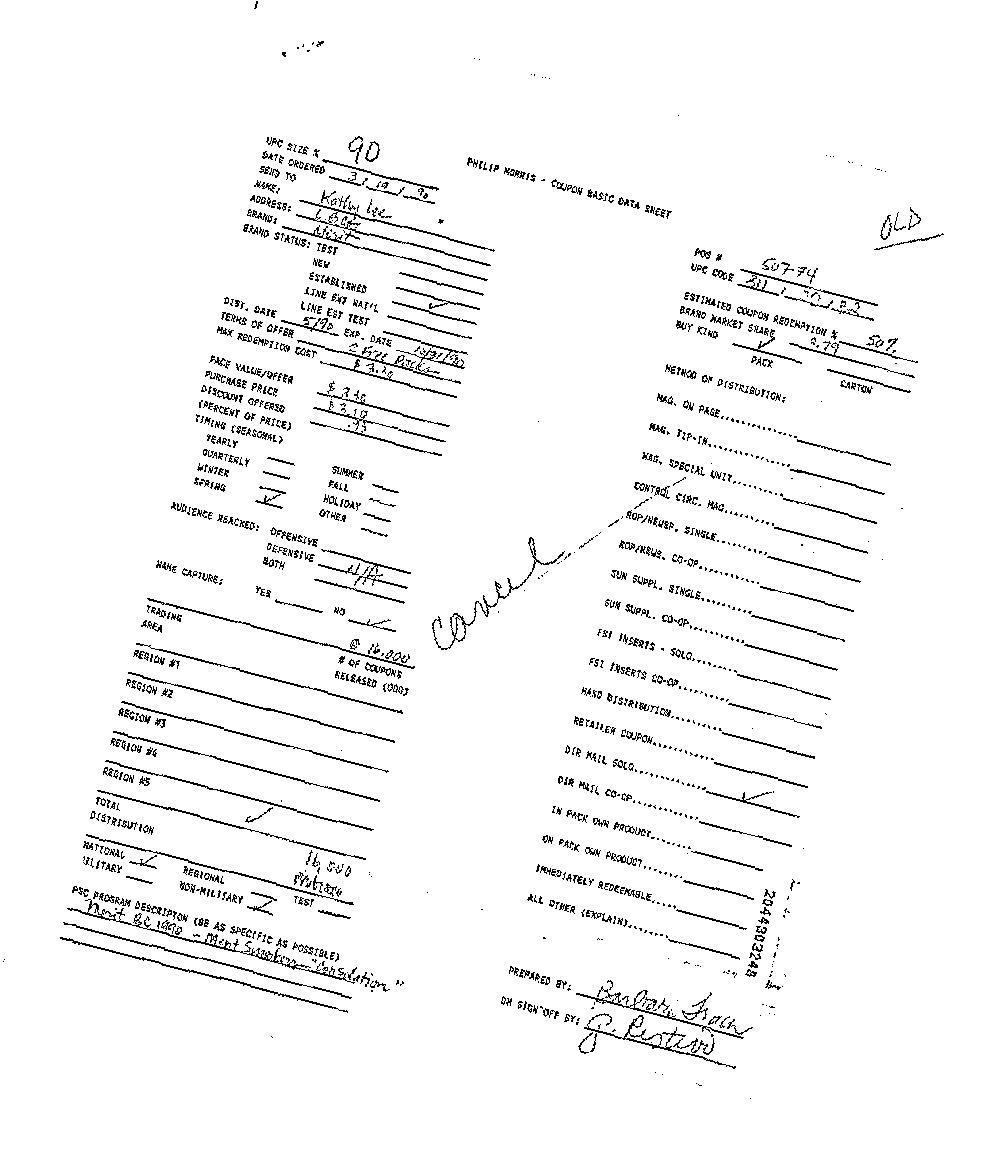 PHILIP MORRIS - COUPON BASIC DATA SHEET
OLD
UPC SIZE % 90
DATE ORDERED 3/19/90
SEND TO
NAME: Kathy Lee
ADDRESS:
BRAND: Merit
BRAND STATUS: TEST
NEW
ESTABLISHED ✓
LINE EXT NAT'L
LINE EXT TEST
DIST. DATE 5/90 EXP. DATE
TERMS OF OFFER 2 Free Packs
MAX REDEMPTION COST $3.20
FACE VALUE/OFFER
PURCHASE PRICE
DISCOUNT OFFERED
(PERCENT OF PRICE)
TIMING (SEASONAL)
YEARLY
QUARTERLY
WINTER
SPRING ✓
SUMMER
FALL
HOLIDAY
OTHER
AUDIENCE REACHED: OFFENSIVE
DEFENSIVE
BOTH N/A
NAME CAPTURE: YES NO ✓
@ 16,000
TRADING
AREA
# OF COUPONS
RELEASED (000)
REGION #1
REGION #2
REGION #3
REGION #4
REGION #5
TOTAL ✓
DISTRIBUTION 16,500
NATIONAL ✓ REGIONAL TEST
MILITARY NON-MILITARY ✓
PSC PROGRAM DESCRIPTON (BE AS SPECIFIC AS POSSIBLE)
Merit BC 1990 - Merit Smokers "Consolation"
Cancel
POS # 507-74
UPC CODE
ESTIMATED COUPON REDEMPTION % 50%
BRAND MARKET SHARE 3.79
BUY KIND ✓
PACK CARTON
METHOD OF DISTRIBUTION:
MAG. ON PAGE
MAG. TIP-IN
MAG. SPECIAL UNIT
CONTROL CIRC. MAG.
ROP/NEWSP. SINGLE
ROP/NEWS. CO-OP
SUN SUPPL. SINGLE
SUN SUPPL. CO-OP
FSI INSERTS - SOLO
FSI INSERTS CO-OP
HAND DISTRIBUTION
RETAILER COUPON
DIR MAIL SOLO ✓
DIR MAIL CO-OP
IN PACK OWN PRODUCT
ON PACK OWN PRODUCT
IMMEDIATELY REDEEMABLE
ALL OTHER (EXPLAIN)
PREPARED BY: Barbara
DM SIGN-OFF BY: G.
2044303248